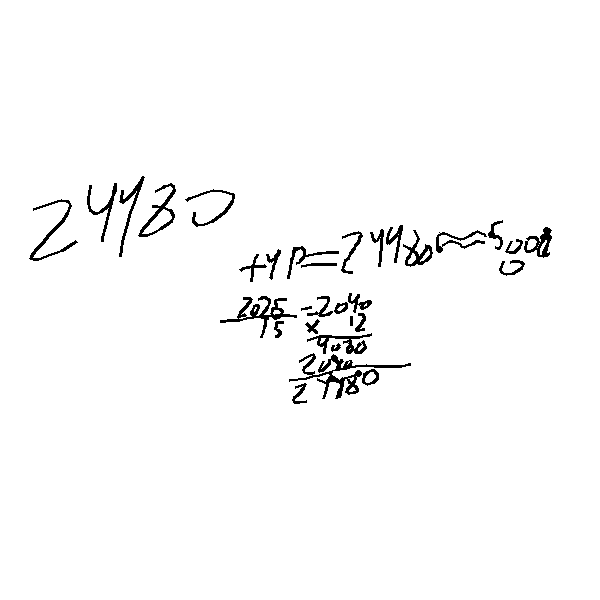 24480
+4P=24480≈5000
0
2025 =2040
15 × 12
4080
2040
24480